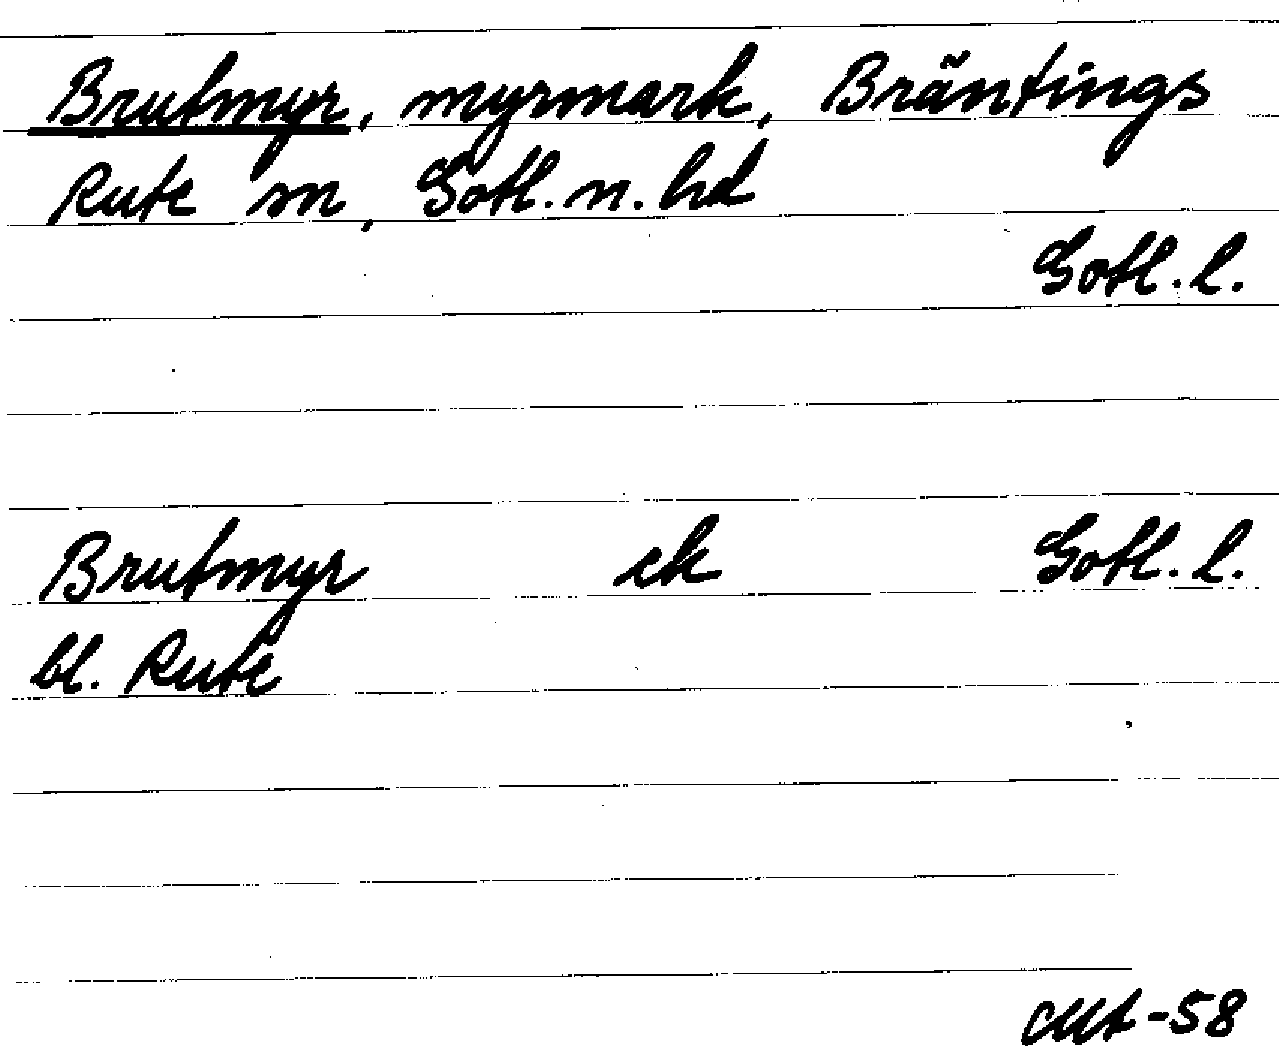 Brutmyr, myrmark, Bräntings
Rute sn, Gotl. n. hd
Gotl. l.
Brutmyr ek Gotl. l.
bl. Rute
-58